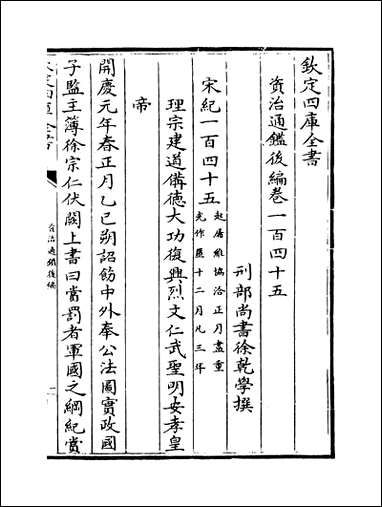 欽定四庫全書
資治通鑑後編卷一百四十五
刑部尚書徐乾學撰
宋紀一百四十五
起屠維協洽正月盡重
光作噩十二月凡三年
理宗建道備德大功復興烈文仁武聖明安孝皇
帝
開慶元年春正月乙巳朔詔飭中外奉公法圖實政國
子監主簿徐宗仁伏闕上書曰當罰者軍國之綱紀賞
欽定四庫全書
資治通鑑後編